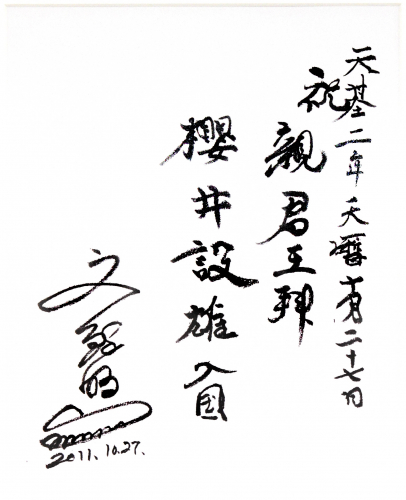 天基二年天曆十月二十七日
祝
親君王拜
櫻井設雄入国
文鮮明
2011.10.27.